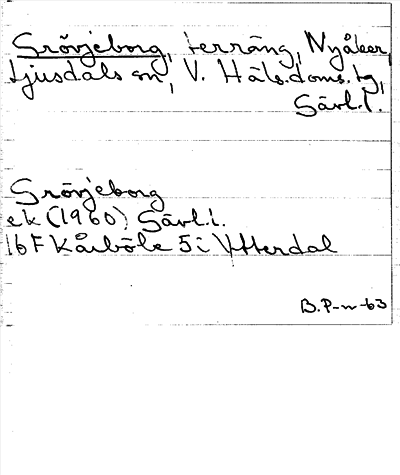 Srövjeborg, terräng, Nyåker,
Ljusdals sn, V. Häls.doms. tg,
Gävl.l.
Srövjeborg
ek (1960) Gävl.l.
16F Kårböle 5i Ytterdal
B.P-n-63